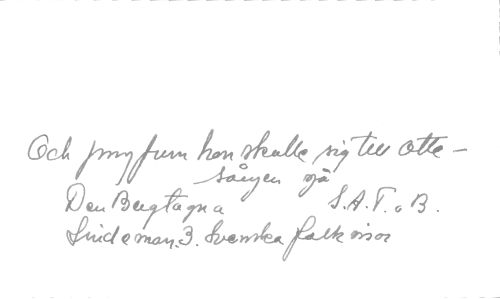 Och jungfrun hon skulle sig till Otte-
sången gå
Den Bergtagna S.A.T. o B.
Lindeman. 3. Svenska folkvisor